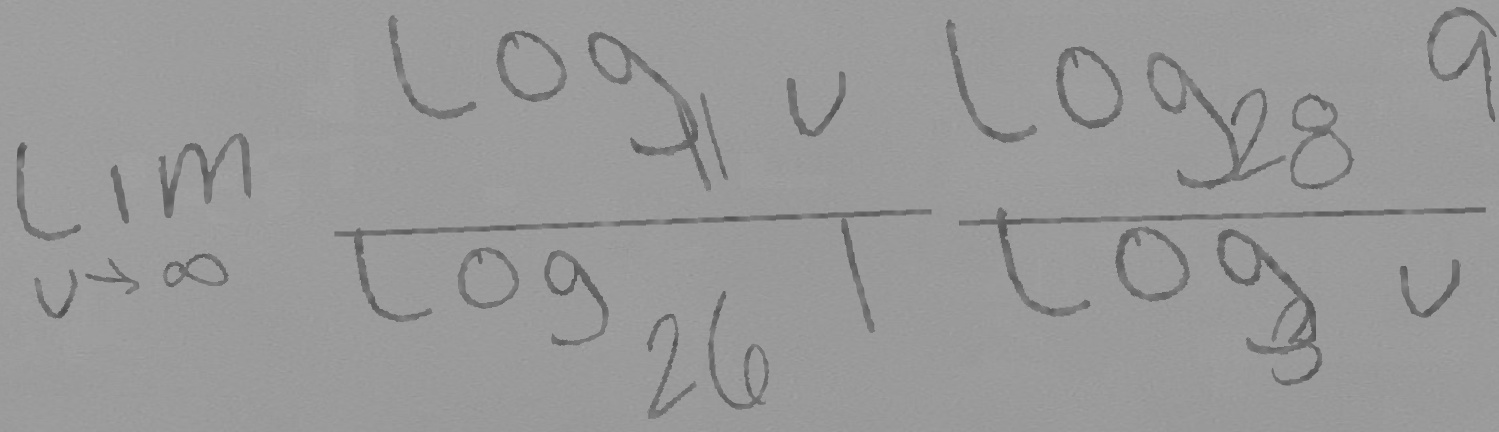 \lim_{v \to \infty} \frac{\log_{11} v}{\log_{26} 1} \frac{\log_{28} 9}{\log_{3} v}